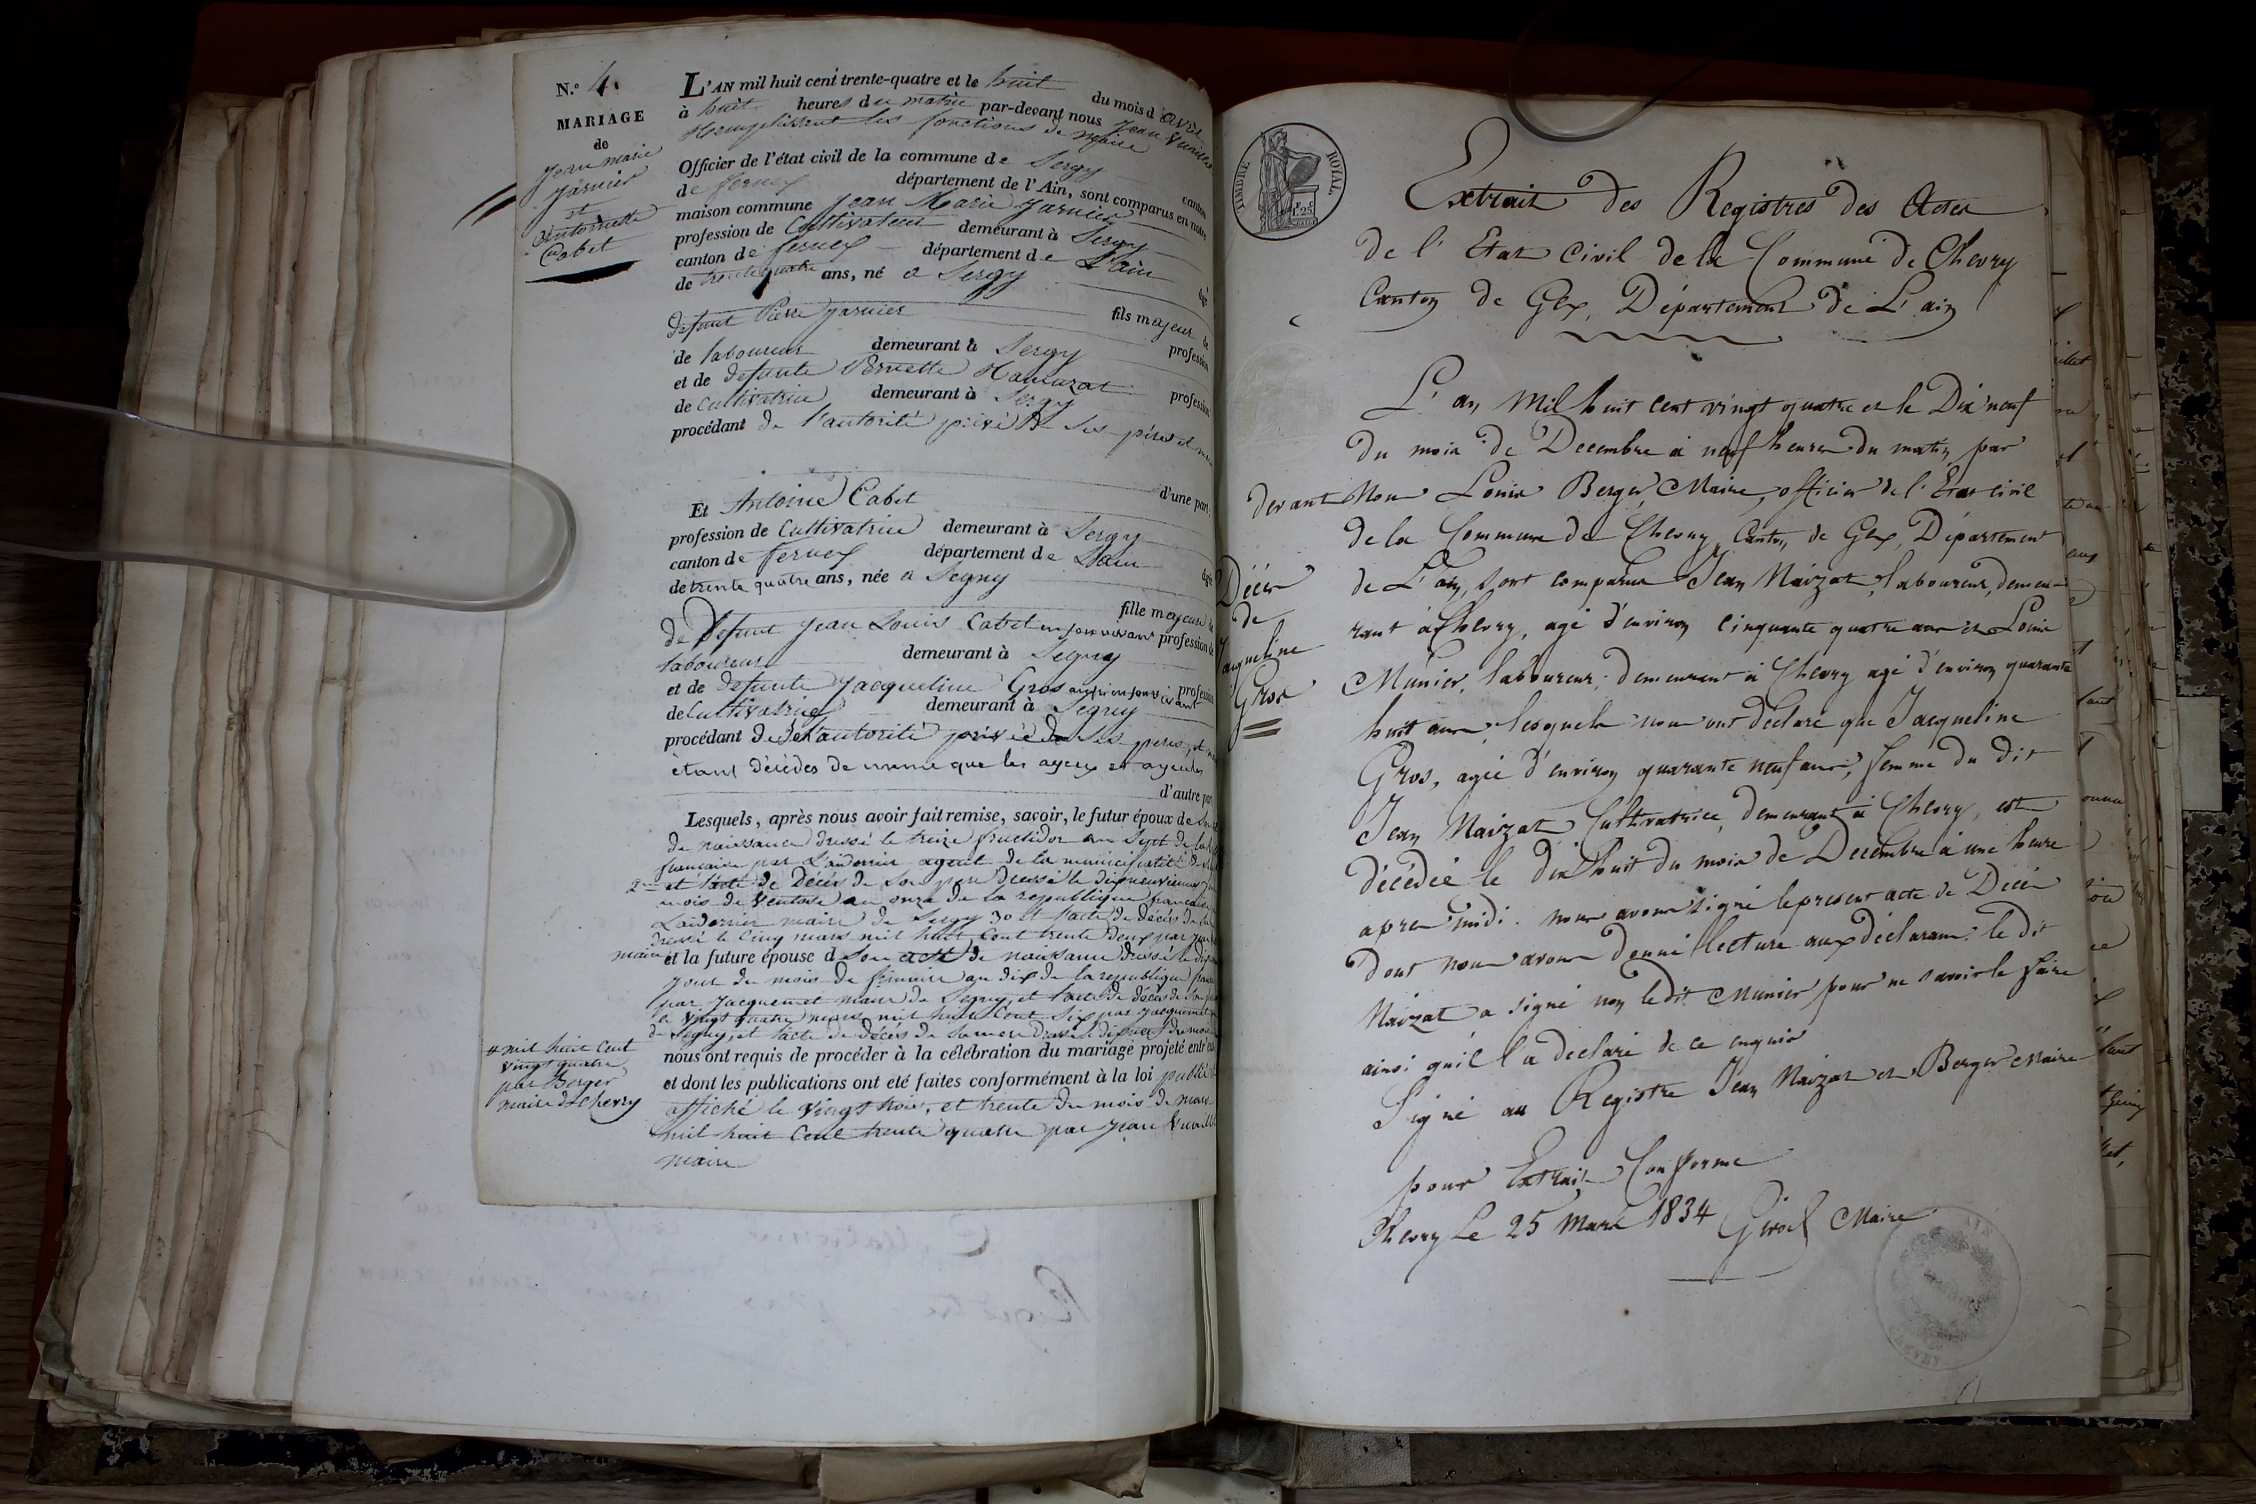 N.° 4.
MARIAGE
de
Jean marie
Jarnier
et
Antoinette
Cabet
L'AN mil huit cent trente-quatre et le huit du mois d avril
à huit heures du matin par-devant nous Jean Vuaillet
Remplissant les fonctions de maire
Officier de l'état civil de la commune de Sergy canton
de fernex département de l'Ain, sont comparus en notre
maison commune Jean Marie Jarnier
profession de Cultivateur demeurant à Sergy
canton de fernex département de L'ain
de trente quatre ans, né a Sergy âgé
fils majeur de
defunt Pierre Jarnier profession
de laboureur demeurant à Sergy
et de defunte Pernette profession
de Cultivatrice demeurant à Sergy
procédant de l'autorité privé de ses pères et
d'une part.
Et Antoine Cabet
profession de Cultivatrice demeurant à Sergy
canton de fernex département de L'ain
de trente quatre ans, née a Segny âgée
fille majeure
de Defunt Jean Louis Cabet en son vivant profession de
laboureur demeurant à Segny
et de defunte Jacqueline Gros aussi en son vivant profession
de Cultivatrice demeurant à Segny
procédant de l'autorité privée de ses peres et
étant décédés de même que les ayeux et ayeules
d'autre part
Lesquels, après nous avoir fait remise, savoir, le futur époux de
de naissance dressé le treize fructidor an Sept de la
francaise par Landernier agent de la municipalité de
2me et l'acte de Décès de Son pere dressé le dixneuvieme
mois de Ventose an onze de la republique francaise
Landernier maire de Sergy 3o et l'acte de décès de
dressé le Cinq mars mil huit Cent trente deux par
maire et la future épouse d Son acte de naissance dressé le
jour du mois de frimaire an dix de la republique
par Jacquemet maire de Segny, et l'acte de décès de Son
le Vingt quatre mars mil huit Cent Six par Jacquemet
de Segny, et l'acte de décès de Sa mere dressé le dixneuf du mois
# mil huit Cent
Vingt quatre
par Berger
maire de Chevry
nous ont requis de procéder à la célébration du mariage projeté entr'eux
et dont les publications ont été faites conformément à la loi publié
affiché le Vingt trois, et trente du mois de mars
mil huit Cent trente quatre par Jean Vuaillet
maire
TIMBRE ROYAL
1F. 25
Extrait des Registres des Actes
de l'Etat Civil de la Commune de Chevry
Canton de Gex, Département de L'ain
L'an Mil huit cent vingt quatre et le Dix neuf
du mois de Decembre à neuf heures du matin, par
devant Nous Louis Berger, Maire, officier de l'Etat Civil
de la Commune de Chevry, Canton de Gex, Département
de L'ain, sont comparus Jean Naizat, laboureur, demeu-
rant à Chevry, agé d'environ cinquante quatre ans et Louis
Munier, laboureur, demeurant à Chevry agé d'environ quarante
huit ans, lesquels nous ont déclaré que Jacqueline
Gros, agée d'environ quarante neuf ans, femme du dit
Jean Naizat Cultivatrice, demeurant à Chevry, est
décédée le dix huit du mois de Decembre à une heure
apres midi. nous avons signé le present acte de Décès
dont nous avons donné lecture aux déclarans. le dit
Naizat a signé non ledit Munier pour ne savoir le faire
ainsi qu'il l'a declaré de ce enquis
Signé au Registre Jean Naizat et Berger Maire
Décès
de
Jacqueline
Gros
pour Extrait Conforme
Chevry Le 25 Mars 1834 Girod Maire